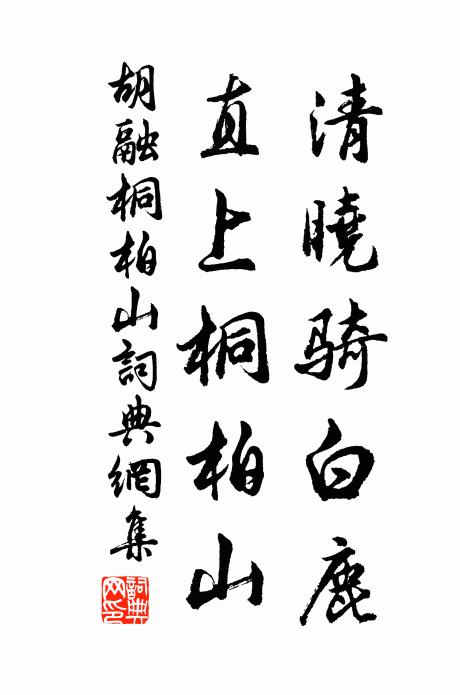 清曉騎白鹿
直上桐柏山
胡融桐柏山詞典網集
詞典
网印